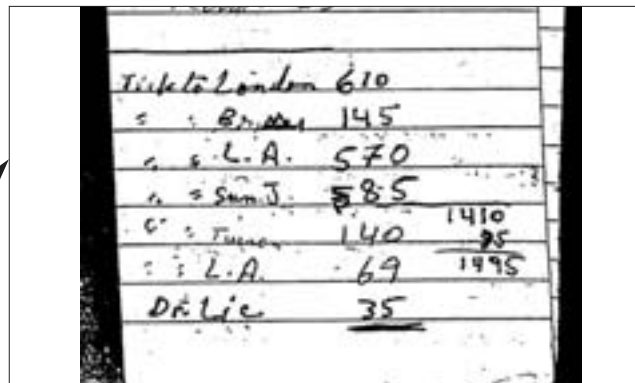 Tick to London 610
" " 145
" " L.A. 570
" " San J. 585
" " Tucson 140
" " L.A. 69
Dr. Lic 35
1410
85
1495